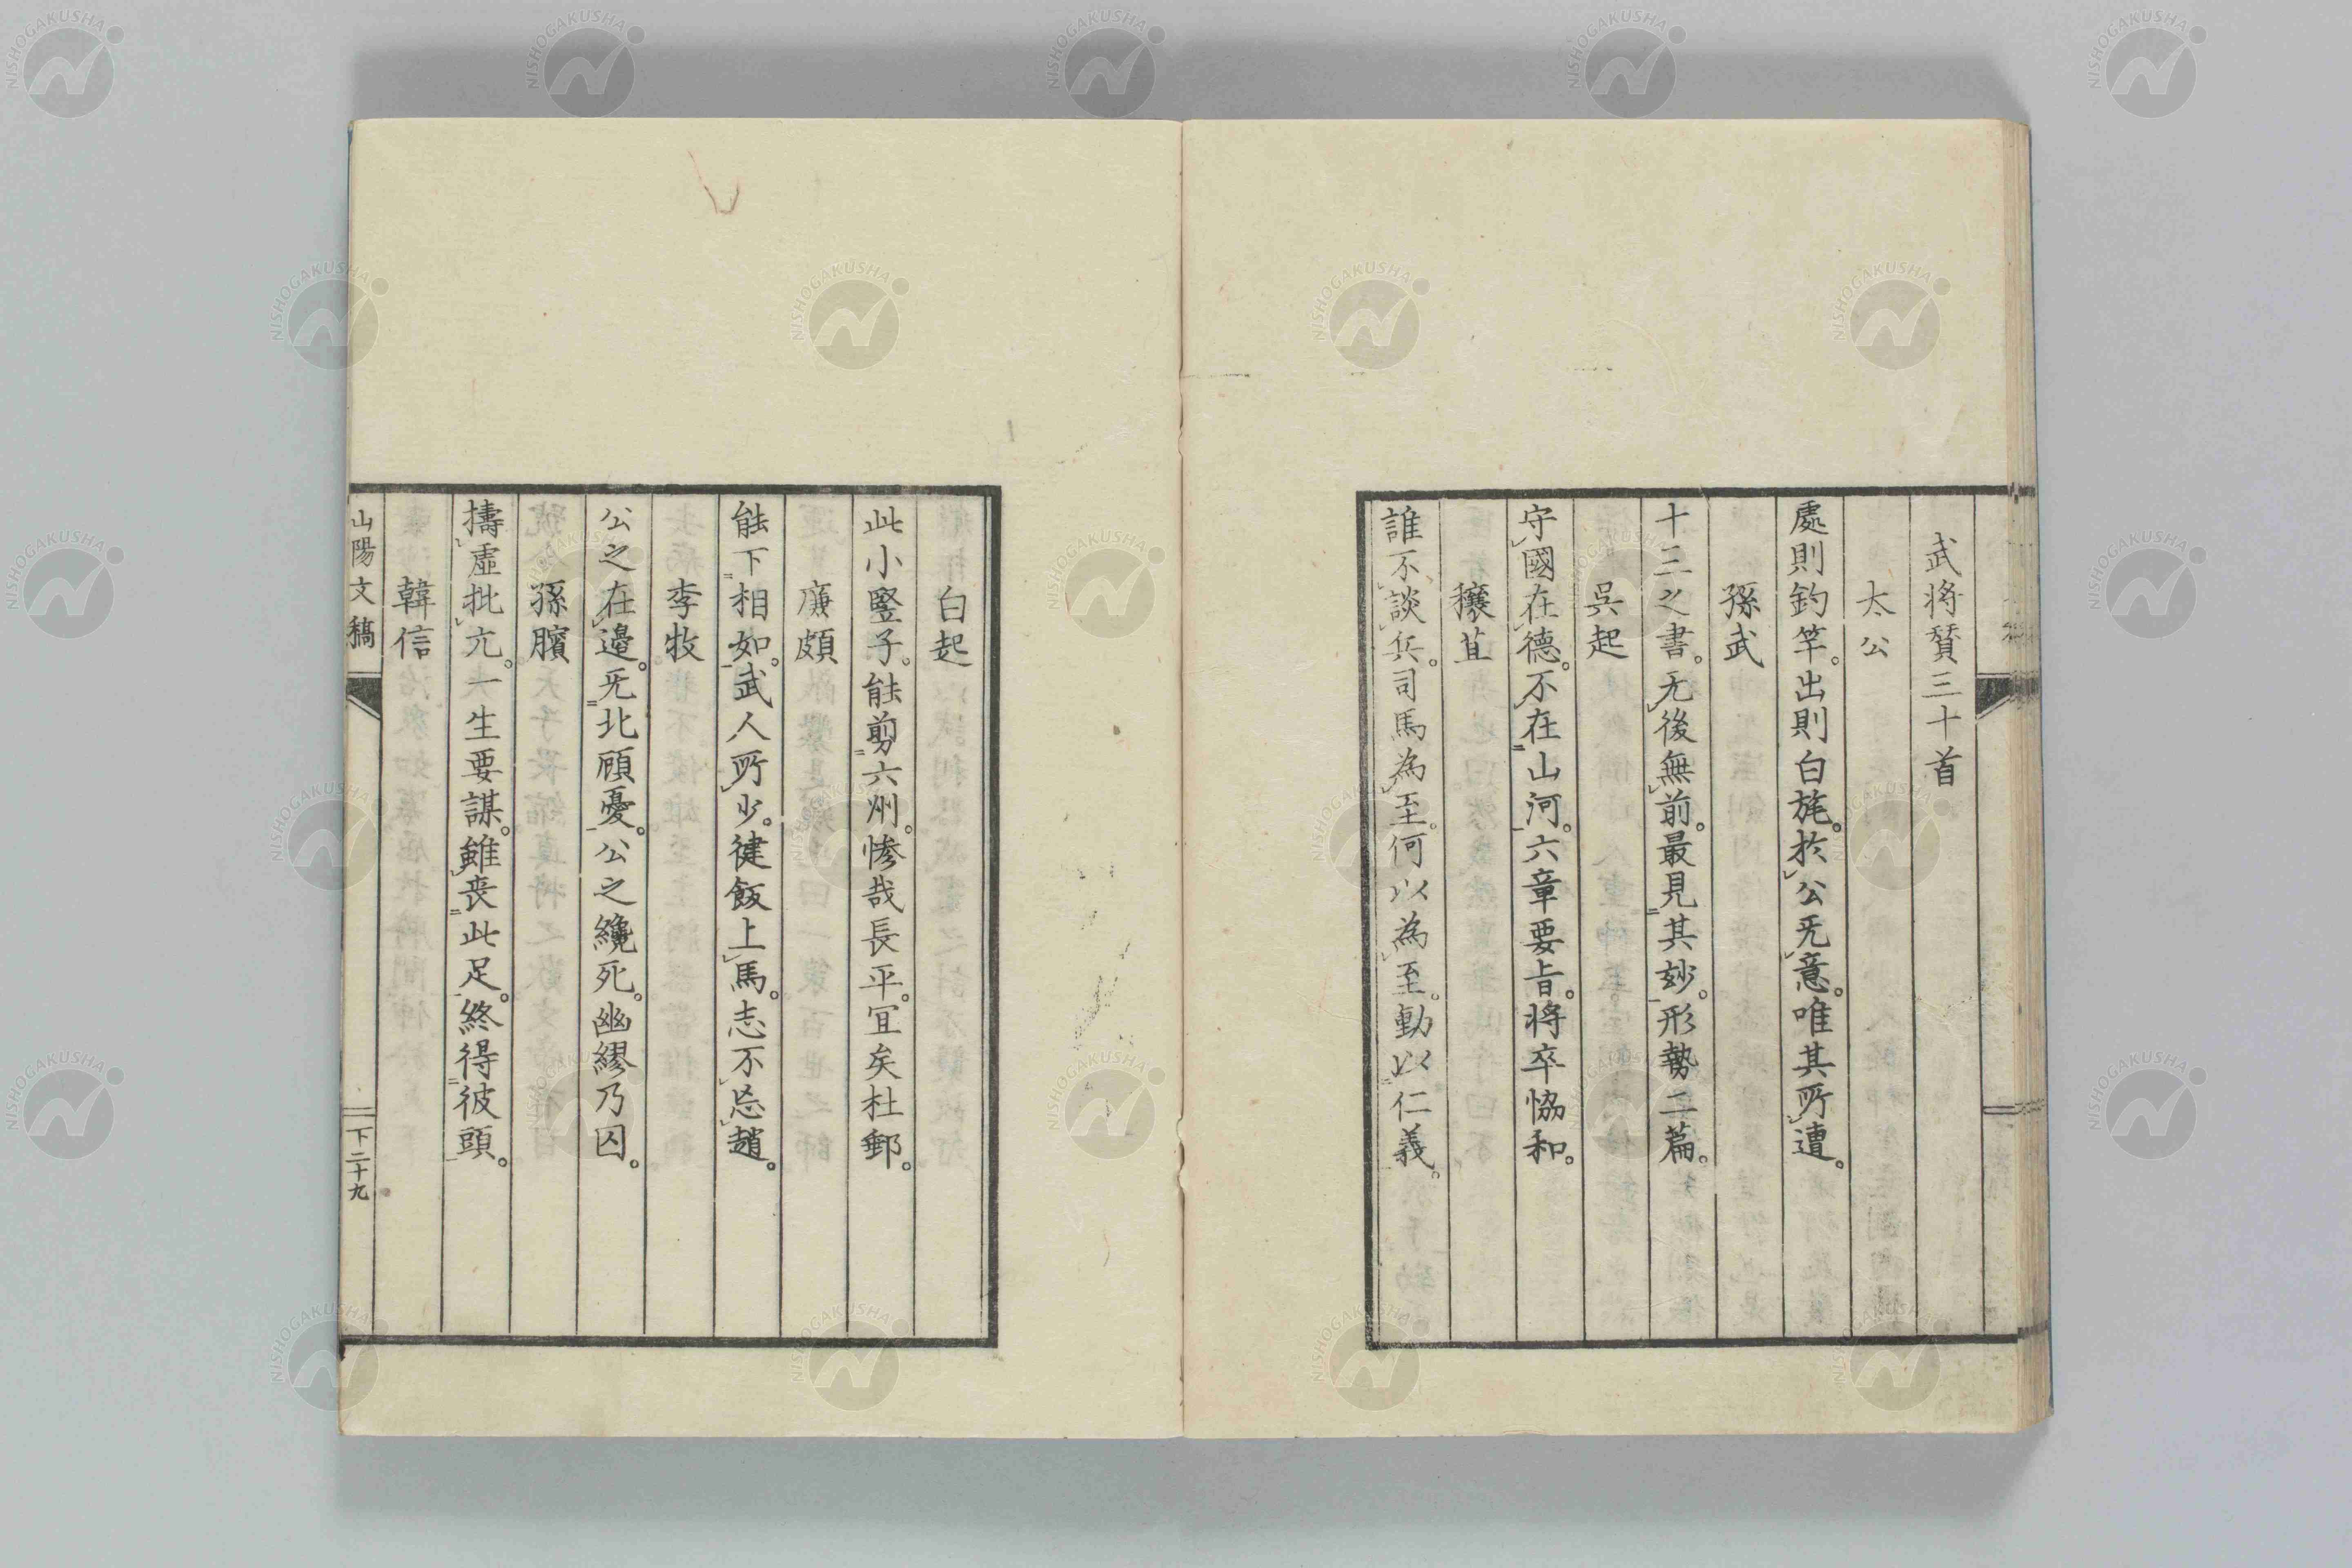 武将贊三十首
太公
處則釣竿。出則白旄。於公旡意。唯其所遭。
孫武
十三之書。旡後無前。最見其妙。形勢二篇。
呉起
守國在德。不在山河。六章要旨。將卒恊和。
穰苴
誰不談兵。司馬為至。何以為至。動以仁義。
白起
此小豎子。能剪六州。惨哉長平。冝矣杜郵。
廉頗
能下相如。武人所少。健飯上馬。志不忘趙。
李牧
公之在邊。旡北顧憂。公之纔死。幽繆乃囚。
孫臏
擣虛批亢。一生要謀。雖丧此足。終得彼頭。
韓信
山陽文稿
下二十九
NISHOGAKUSHA